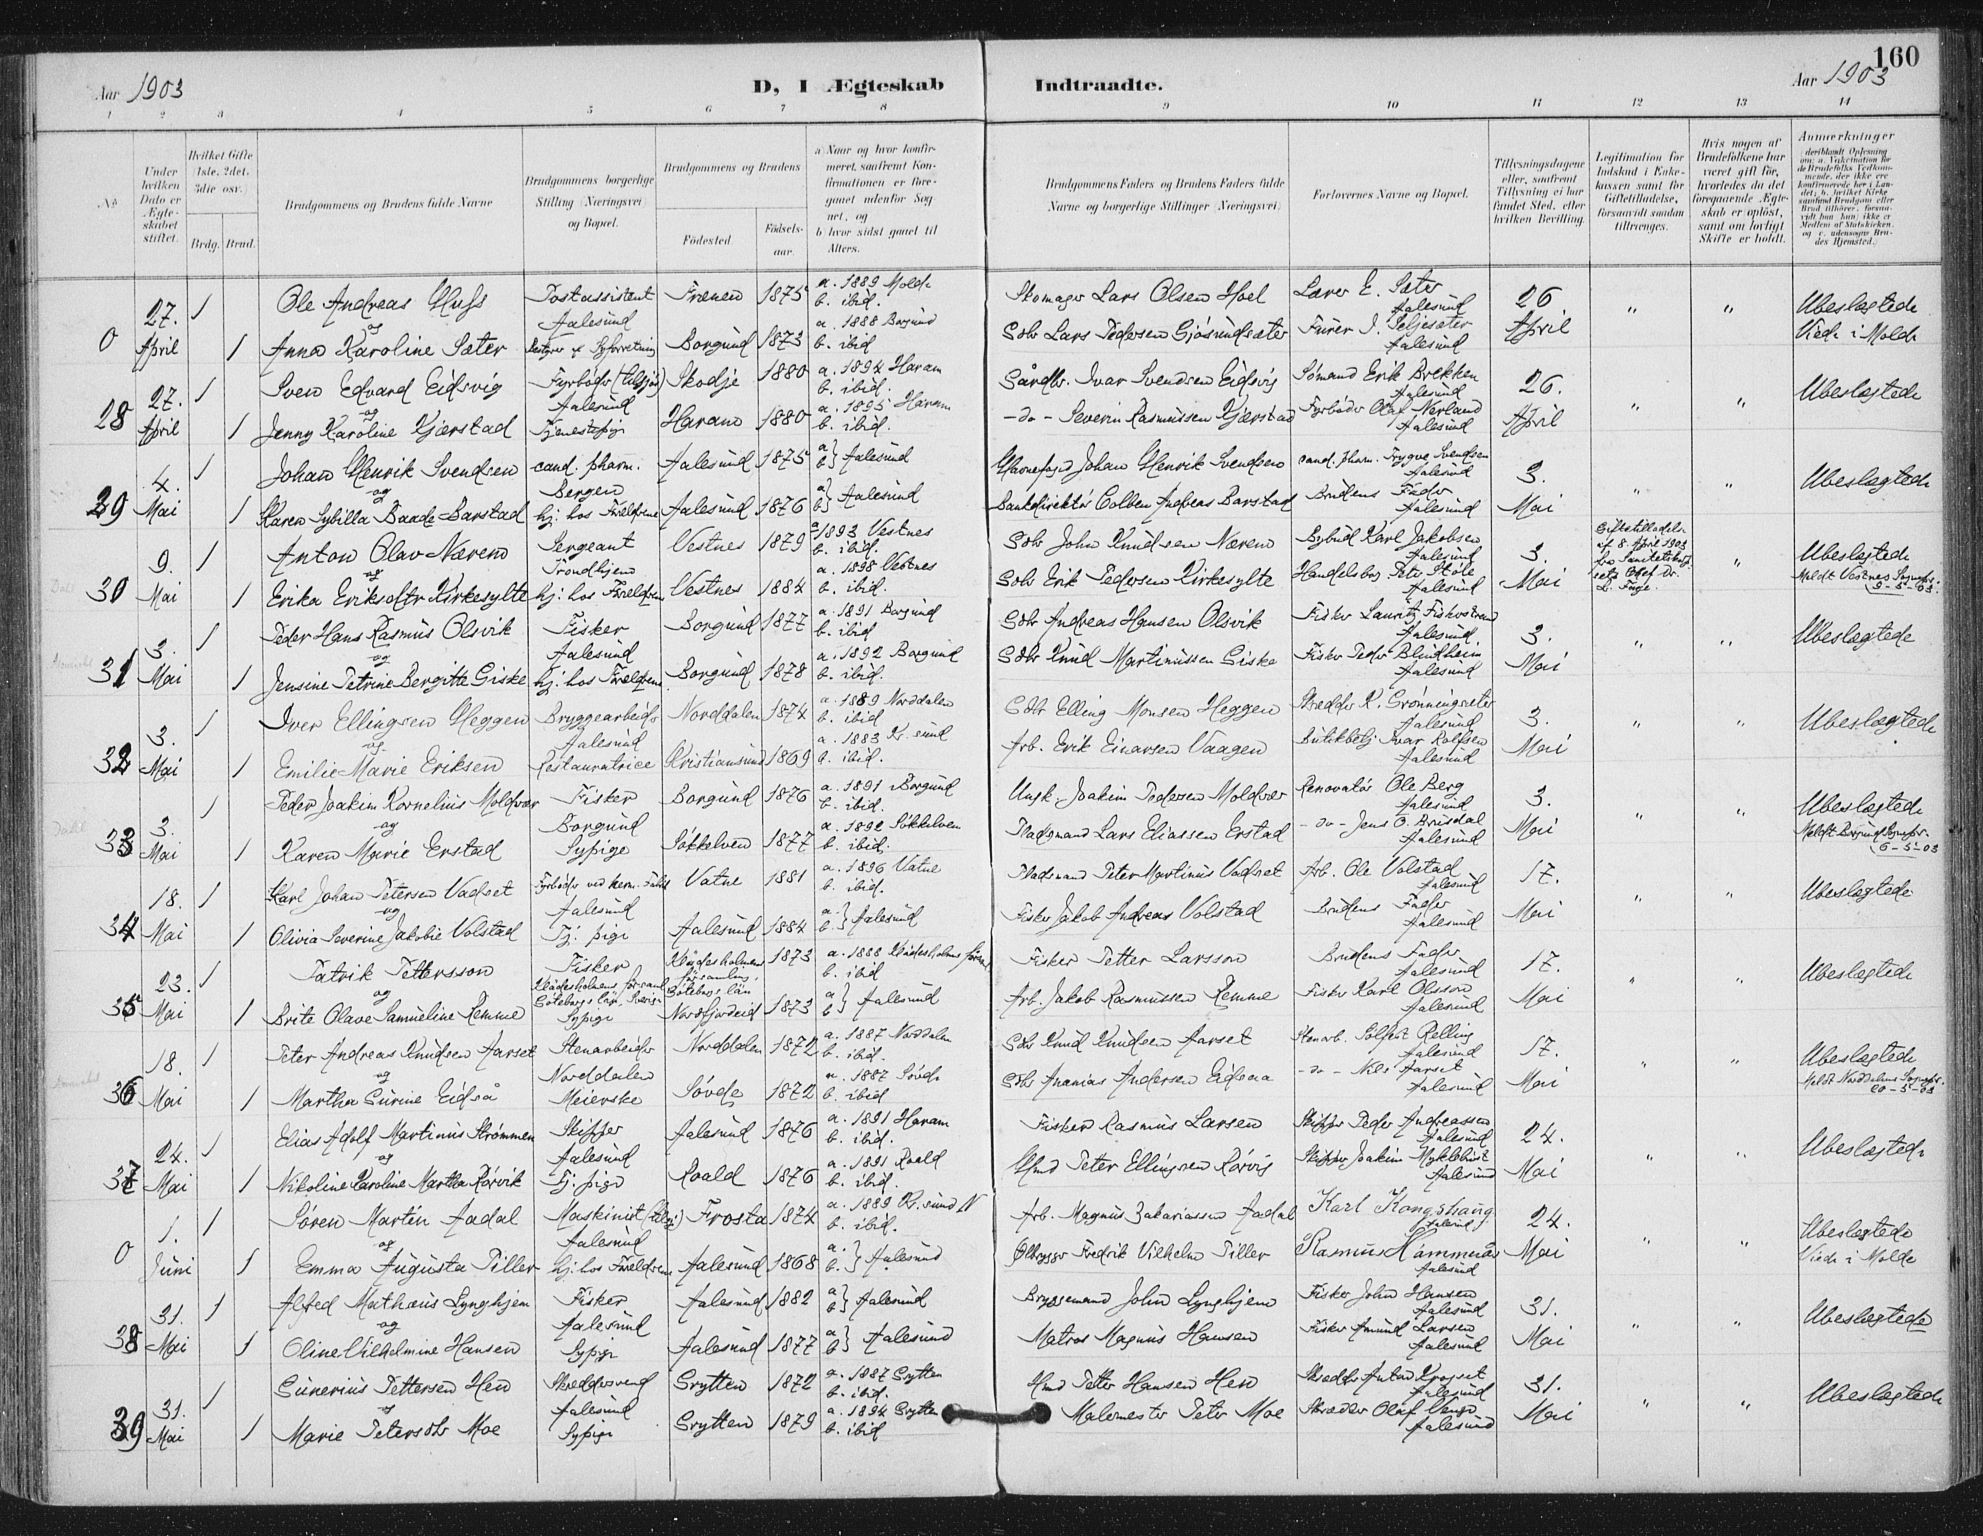 160
Aar 1903
D, I Ægteskab Indtraadte.
Aar 1903
1 2 3 4 5 6 7 8 9 10 11 12 13 14
No
Under hvilken Dato er Ægteskabet stiftet.
Hvilket Gifte 1ste. 2det. 3die osv.
Brdg. Brud.
Brudgommens og Brudens fulde Navne
Brudgommens borgerlige Stilling (Næringsvei) og Bopæl.
Brudgommens og Brudens
Fødested. Fødselsaar.
a Naar og hvor konfirmeret, saafremt Konfirmationen er foregaaet udenfor Sognet, og
b hvor sidst gaaet til Alters.
Brudgommens Faders og Brudens Faders fulde Navne og borgerlige Stillinger (Næringsvei)
Forlovernes Navne og Bopæl.
Tillysningsdagene eller, saafremt Tillysning ei har fundet Sted, efter hvilken Bevilling.
Legitimation for Indskud i Enkekassen samt for Giftetilladelse, forsaavidt saadan tiltrænges.
Hvis nogen af Brudefolkene har været gift før, hvorledes da det foregaaende Ægteskab er opløst, samt om lovligt Skifte er holdt.
Anmærkninger
0 27. April 1 Ole Andreas Postassistent Aalesund Frænen 1875 a. 1889 Molde b. ibid. Skomager Lars Olsen Hoel Lærer E. Sæter Aalesund 26 April " " Ubeslægtede
og
1 Anna Karoline Sæter Borgund 1873 a. 1888 Borgund b. ibid Sdbr Lars Pedersen Gjøsundsæter Furer J. Seljesæter Aalesund Viede i Molde
28 27. April 1 Sven Edvard Eidsvig Fyrbøder Aalesund Skodje 1880 a. 1894 Haram b. ibid. Gårdbr. Ivar Svendsen Eidsvig Sømand Erik Brekken Aalesund 26. April " " Ubeslægtede
og
1 Jenny Karoline Kjærstad Tjenestepige Haram 1880 a. 1895 Haram b. ibid. -do- Severin Rasmussen Kjærstad Fyrbøder Olaf Nerland Aalesund
29 4. Mai 1 Johan Henrik Svendsen cand. pharm. Bergen Aalesund 1875 a b } Aalesund Havnefoged Johan Henrik Svendsen cand. pharm. Trygve Svendsen Aalesund 3. Mai " " Ubeslægtede
og
1 Karen Sybilla Baade Barstad hj: hos Forældrene Aalesund 1876 a b } Aalesund Bankdirektør Colben Andreas Barstad Brudens Fader Aalesund
30 9. Mai 1 Anton Olav Nærem Sergeant Trondhjem Vestnes 1879 a 1893 Vestnes b. ibid. Sdbr John Knudsen Nærem Bybud Karl Jakobsen Aalesund 3. Mai Giftestilladelse af 8 April 1903 " Ubeslægtede
og
1 Erika Eriksdtr Kirkesylte hj: hos Forældrene Vestnes 1884 a. 1898 Vestnes b. ibid. Sdbr Erik Pedersen Kirkesylte Aalesund Meldt Vestnes Sognepr. 9-5-03.
31 3. Mai 1 Peder Hans Rasmus Olsvik Fisker Aalesund Borgund 1877 a. 1891 Borgund b. ibid Sdbr Andreas Hansen Olsvik Fisker Lauritz Fiskestrand Aalesund 3. Mai " " Ubeslægtede
og
1 Jensine Petrine Bergitte Giske hj: hos Forældrene Borgund 1878 a. 1892 Borgund b. ibid. Sdbr Knud Martinussen Giske Fisker Peder Blindheim Aalesund
32 3. Mai 1 Iver Ellingsen Heggen Bryggearbeider Aalesund Norddalen 1874 a. 1889 Norddalen b. ibid Sdbr Elling Monsen Heggen Skrædder K. Grønningsæter Aalesund 3. Mai " " Ubeslægtede
og
1 Emilie Marie Eriksen Restauratrice Kristiansund 1869 a. 1883 Kr. sund b. ibid. Arb. Erik Einarsen Vaagen Butikbetj. Ivar Rolfsen Aalesund
33 3. Mai 1 Peder Joakim Kornelius Moldvær Fisker Borgund Borgund 1876 a. 1891 Borgund b. ibid. Ungk. Joakim Pedersen Moldvær Renovatør Ole Berg Aalesund 3. Mai " " Ubeslægtede
og
1 Karen Marie Erstad Sypige Søkkelven 1877 a. 1892 Søkkelven b. ibid. Pladsmand Lars Eliassen Erstad -do- Jens O. Brusdal Aalesund Meldt Borgund Sognepr. 6-5-03
34 18. Mai 1 Karl Johan Petersen Vadset Aalesund Vatne 1881 a. 1896 Vatne b. ibid. Pladsmand Peter Martinus Vadset Arb. Ole Volstad Aalesund 17. Mai " " Ubeslægtede
og
1 Olivia Severine Jakobie Volstad Tj. pige Aalesund 1884 a. b. } Aalesund Fisker Jakob Andreas Volstad Brudens Fader Aalesund
35 23. Mai 1 Patrik Pettersson Fisker Klädesholmens församl. Göteborgs län, Sverige Klädesholmens församling Göteborgs län 1873 a. 1888 Klädesholmens församl. b. ibid Fisker Petter Larsson Brudens Fader Aalesund 17. Mai " " Ubeslægtede
og
1 Brite Olave Samueline Remme Sypige Nordfjordeid 1873 a b } Aalesund Arb. Jakob Rasmussen Remme Fisker Karl Olsson Aalesund
36 18. Mai 1 Peter Andreas Knudsen Aarset Stenarbeider Norddalen Norddalen 1872 a. 1887 Norddalen b. ibid. Sdbr Knud Knudsen Aarset Stenarb. Solfest Relling Aalesund 17. Mai " " Ubeslægtede
og
1 Martha Surine Eidså Meierske Søvde 1872 a. 1887 Søvde b. ibid Sdbr Ananias Andersen Eidsaa -do- Nils Aarset Aalesund Meldt Norddalens Sognepr. 20-5-03
37 24. Mai 1 Elias Adolf Martinus Strømmen Skipper Aalesund Aalesund 1876 a. 1891 Haram b. ibid. Fisker Rasmus Larsen Skipper Peder Andreassen Aalesund 24. Mai " " Ubeslægtede
og
1 Nikoline Karoline Martha Rørvik Tj. pige Roald 1876 a. 1891 Roald b. ibid. Gmd Peter Ellingsen Rørvig Skipper Joakim Myklebust Aalesund
0 1. Juni 1 Søren Martin Aadal Maskinist Aalesund Frosta 1874 a. 1889 Kr. sund N b. ibid. Arb. Magnus Zakariassen Aadal Karl Kongshaug Aalesund 24. Mai " " Ubeslægtede
og
1 Emma Augusta Tiller hj: hos Forældrene Aalesund 1868 a. b. } Aalesund Ølbrygger Fredrik Vilhelm Tiller Rasmus Hammerås Aalesund Viede i Molde
38 31. Mai 1 Alfed Mathæus Lynghjem Fisker Aalesund Aalesund 1882 a b } Aalesund Bryggemand John Lynghjem Fisker John Hansen Aalesund 31. Mai " " Ubeslægtede
og
1 Oline Vilhelmine Hansen Sypige Aalesund 1877 a b } Aalesund Matros Magnus Hansen Fisker Amund Larsen Aalesund
39 31. Mai 1 Sunerius Pettersen Hen Skræddersvend Aalesund Grytten 1872 a. 1887 Grytten b. ibid. Gmd Petter Hansen Hen Skrædder Anton Aalesund 31. Mai " " Ubeslægtede
og
1 Marie Petersdtr Moe Sypige Grytten 1879 a. 1894 Grytten b. ibid Malemester Peter Moe Skrædder Olaf Venge Aalesund